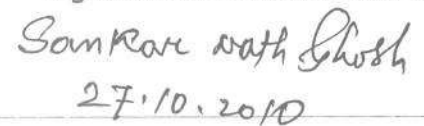 Sankar nath Ghosh
27.10.2010